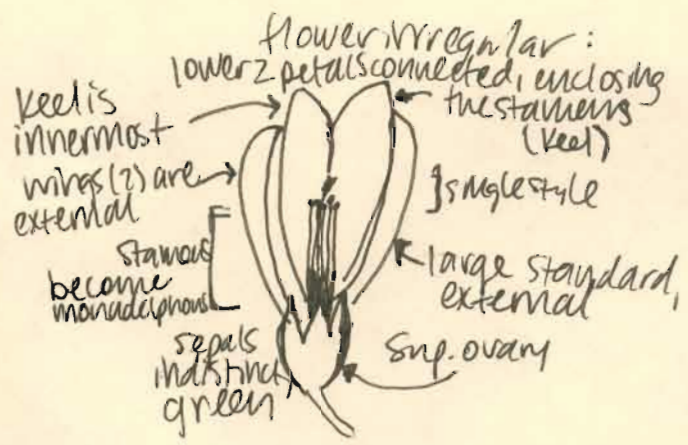 flower irregular:
lower 2 petals connected, enclosing
the stamens
(keel)
keel is
innermost
wings (2) are
external
} single style
stamens
become
monadelphous
large standard,
external
sepals
indistinct,
green
Sup. ovary